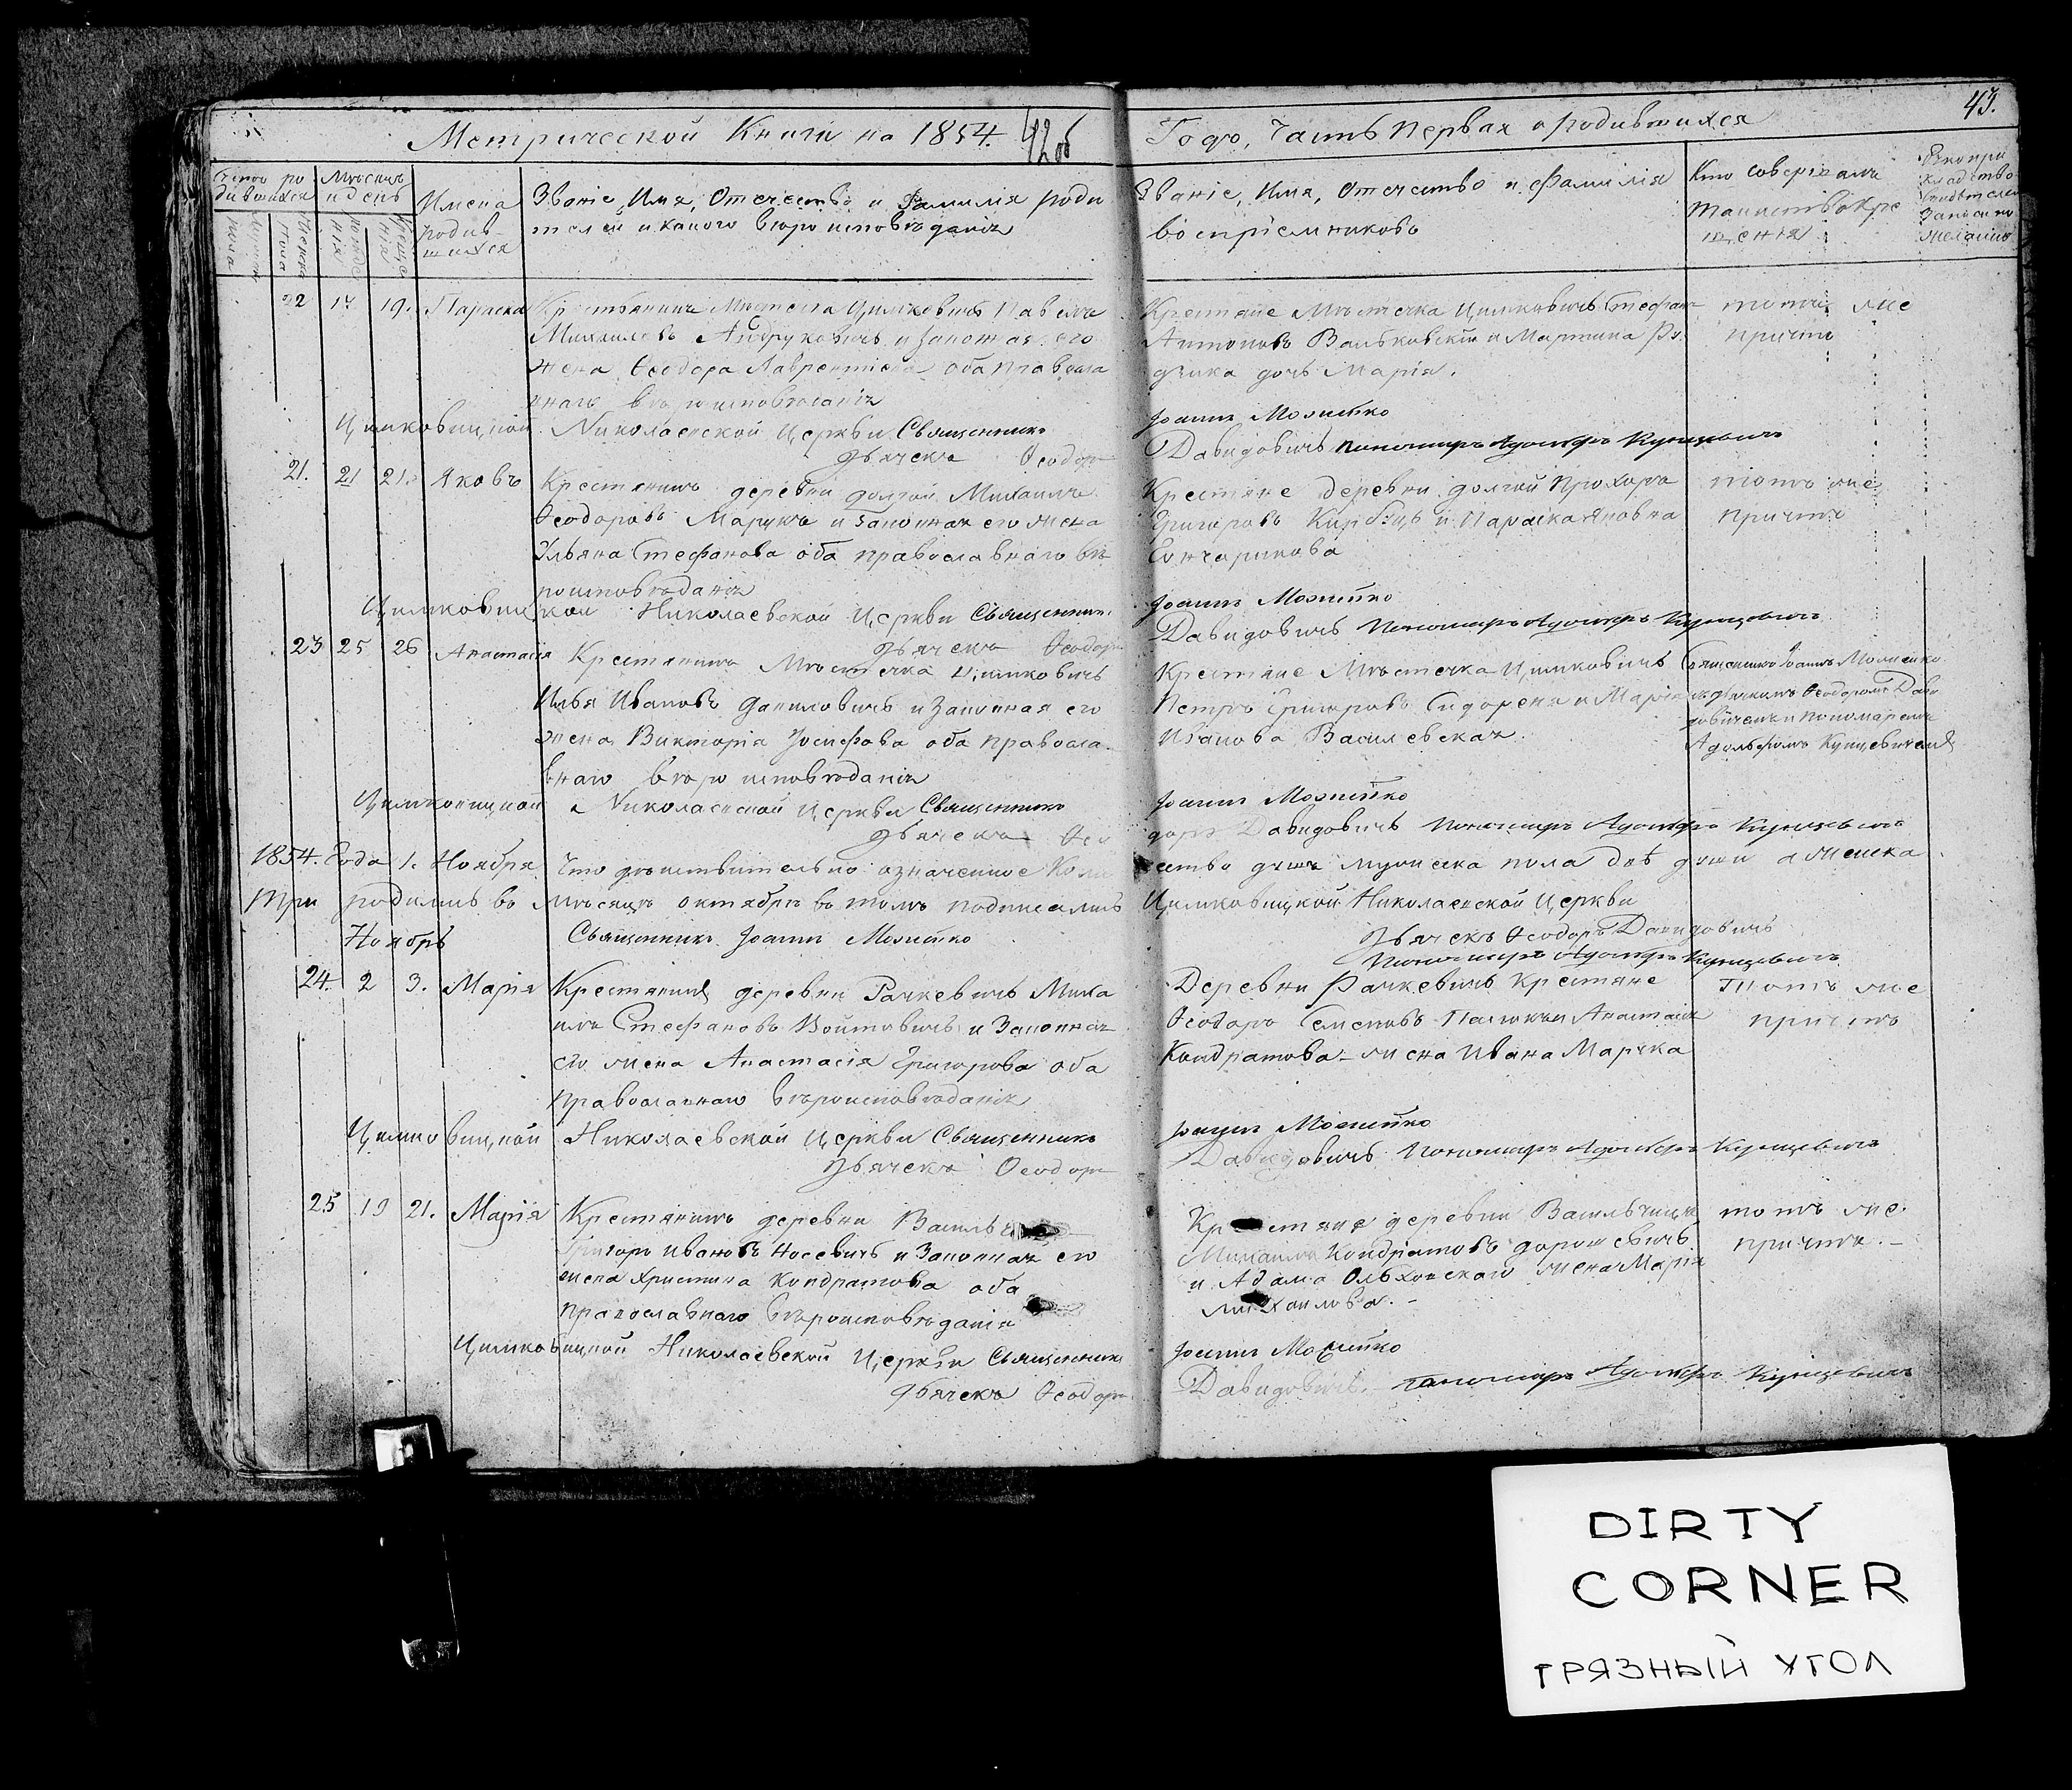 Метрической Книги на 1854. 42 об
Году, Часть Первая о родившихся 43.
Месяцъ и день
Имена родив-
шихся
Званіе, Имя, Отечество и Фамилія роди
телей и какого вѣроисповѣданія
Званіе, Имя, Отечество и Фамилія
воспріемниковъ
Кто совершалъ
таинство Кре
щенія
22 17 19. Параскева Крестьянинъ Мѣстечка Цимковичь Павелъ
Михаиловъ Андруковичь и законная его
жена Ѳеодора Лаврентіева оба правосла
внаго вѣроисповѣданія
Крестяне Мѣстечка Цимковичь Стефанъ
Антоновъ Вальковскій и Мартина
дочь Марія.
тотъ же
причтъ
Цимковицкой Николаевской Церкви Священникъ ІоаннъМожейко
Дьячекъ Ѳеодоръ Давидовичь Пономарь Адольфъ Купцевичь
21. 21 21. Яковъ Крестянинъ деревни Долгой Михаилъ
Ѳеодоровъ Марукъ и законная его жена
Ульяна Стефанова оба православнаго вѣ
роисповѣданія
Крестяне деревни Долгой Прохоръ
Григоровъ и Параска Яновна
Гончарикова
тотъ же
причтъ
Цимковицкой Николаевской Церкви Священникъ Іоаннъ Можейко
Дьячекъ Ѳеодоръ Давидовичь Пономарь Адольфъ Купцевичь
23 25 26 Анастасія Крестянинъ Мѣстечка Цимковичь
Илья Ивановъ Даниловичь и законная его
жена Викторія Іосифова оба правосла
внаго вѣроисповѣданія
Крестяне Мѣстечка Цимковичь
Петръ Григоровъ Сидореня и Марія
Иванова Василевская.
Священникъ Іоаннъ Можейко
съ дьячкомъ Ѳеодоромъ Дави
довичемъ и пономаремъ
Адольфомъ Купцевичемъ
Цимковицкой Николаевской Церкви Священникъ Іоаннъ Можейко
Дьячекъ Ѳеодоръ Давидовичь Пономарь Адольфъ Купцевичь
1854. Года 1. Ноября Что дѣйствительно означенное Коли
чество душъ мужеска пола двѣ души а женска
три родились во мѣсяцѣ октябрѣ во томъ подписались Цимковицкой Николаевской Церкви
Священникъ Іоаннъ Можейко
Дьячекъ Ѳеодоръ Давидовичь
Пономарь Адольфъ Купцевичь
Ноябрь
24. 2 3. Марія Крестянинъ деревни Рачкевичь Миха
илъ Стефановъ Войтовичь и Законная
его жена Анастасія Григорова оба
православнаго вѣроисповѣданія
Деревни Рачкевичь Крестяне
Ѳеодоръ Семеновъ и Анастасія
Кондратова жена Ивана Марука
Тотъ же
причтъ
Цимковицкой Николаевской Церкви Священникъ Іоаннъ Можейко
Дьячекъ Ѳеодоръ Давидовичь Пономарь Адольфъ Купцевичь
25 19 21. Марія Крестянинъ деревни
Григорь Ивановъ Носевичь и Законная его
жена Христина Кондратова оба
православнаго вѣроисповѣданія
Крестяне деревни Васильчицъ
Михаилъ Кондратовъ Дорошевичь
и Адама Ольховскаго жена Марія
Михаилова. -
тотъ же
причтъ. -
Цимковицкой Николаевской Церкви Священникъ Іоаннъ Можейко
Дьячекъ Ѳеодоръ Давидовичь. Пономарь Адольфъ Купцевичь
DIRTY
CORNER
ГРЯЗНЫЙ УГОЛ